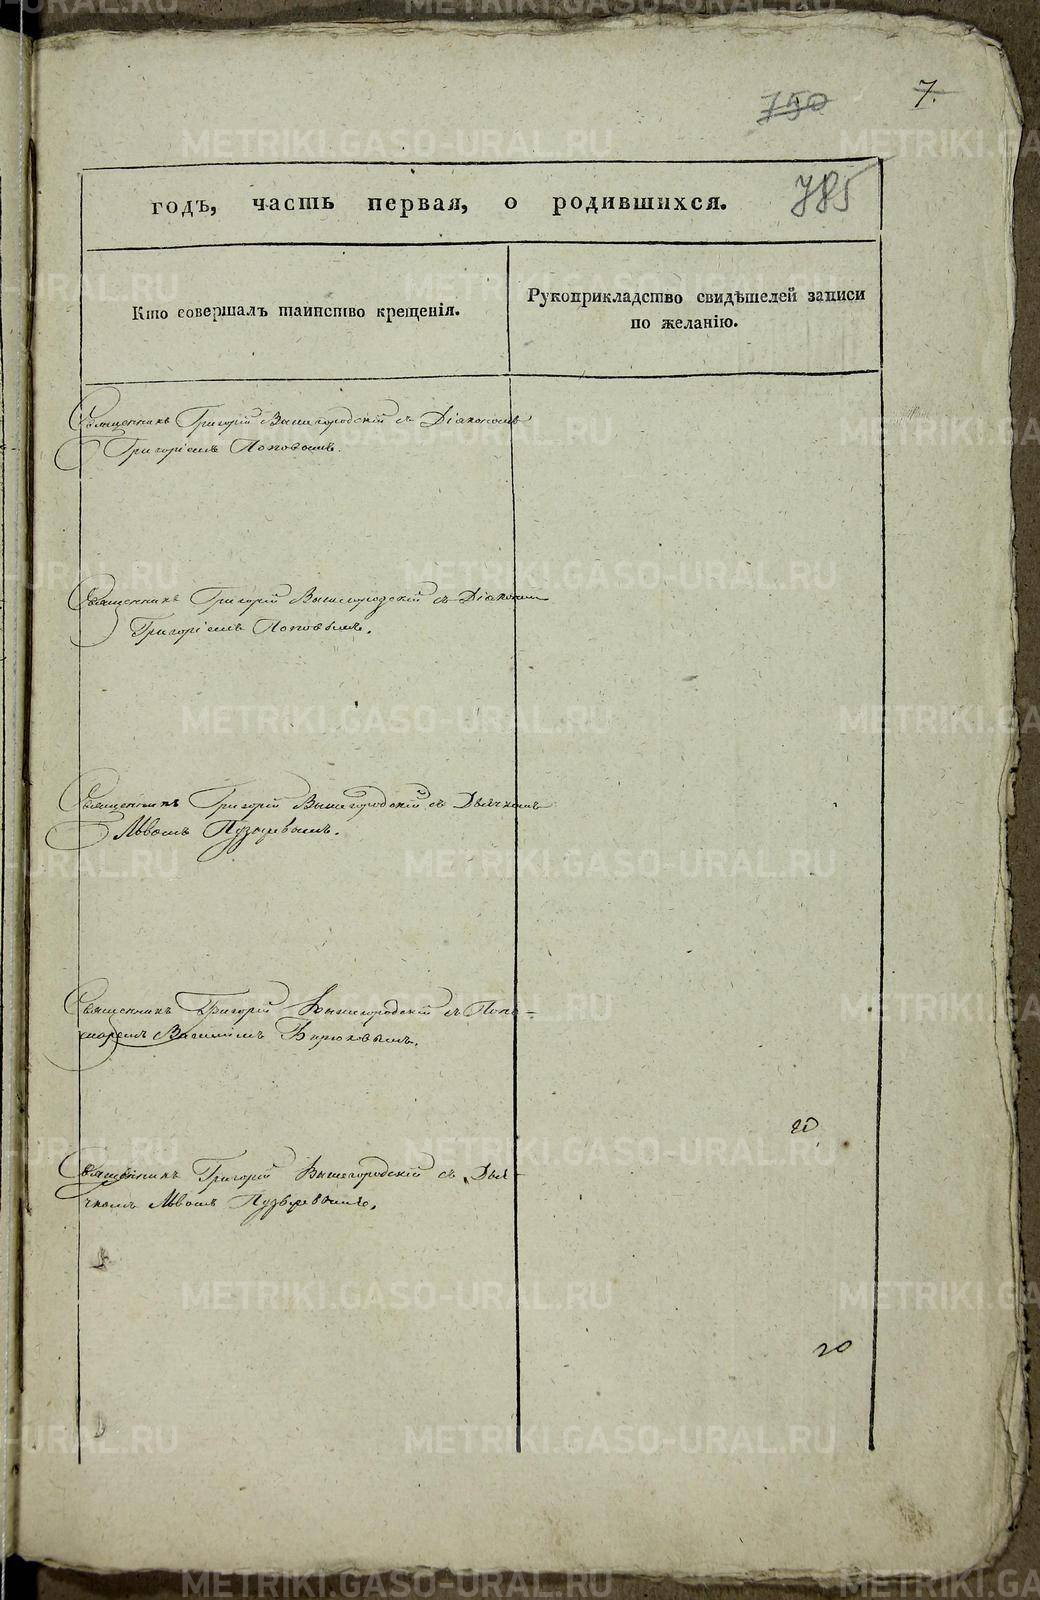 750
7.
785
годъ, часть первая, о родившихся.
Кто совершалъ таинство крещенія.
Рукоприкладство свидѣтелей записи
по желанію.
Священникъ Григорій Вышегородскій съ Діакономъ
Григоріемъ Поповымъ.
Священникъ Григорій Вышегородскій съ Діакономъ
Григоріемъ Поповымъ.
Священникъ Григорій Вышегородскій съ Дьячкомъ
Львомъ Пузыревымъ.
Священникъ Григорій Вышегородскій съ Поно-
маремъ Бирюковымъ.
Священникъ Григорій Вышегородскій съ Дья-
чкомъ Львомъ Пузыревымъ.
20
20
METRIKI.GASO-URAL.RU